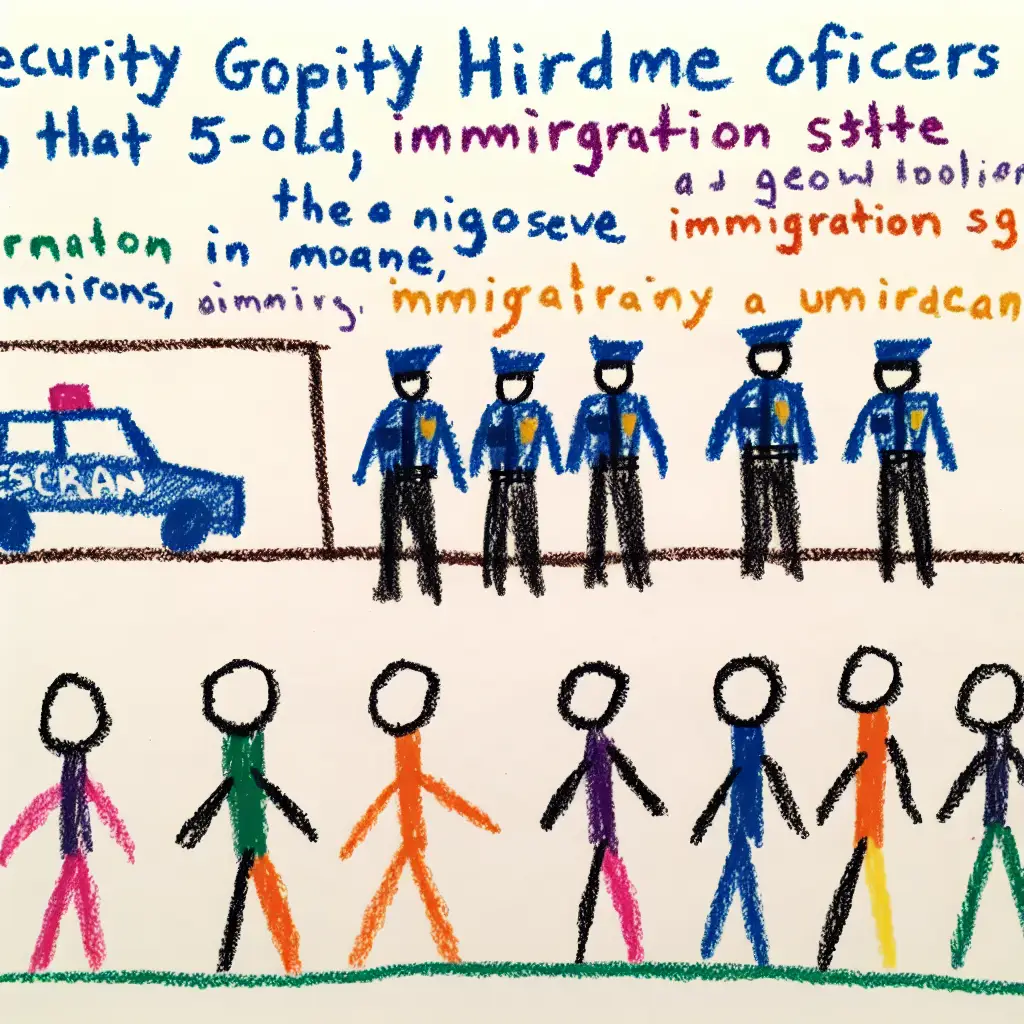 ecurity Gopity Hirdme oficers
that 5-old, immirgration stlte
a geow loolion
the nigoseve immigration sg
rnaton in moane,
nnirons, oimnirg, immigatrainy a umirdcan
ESCRAN